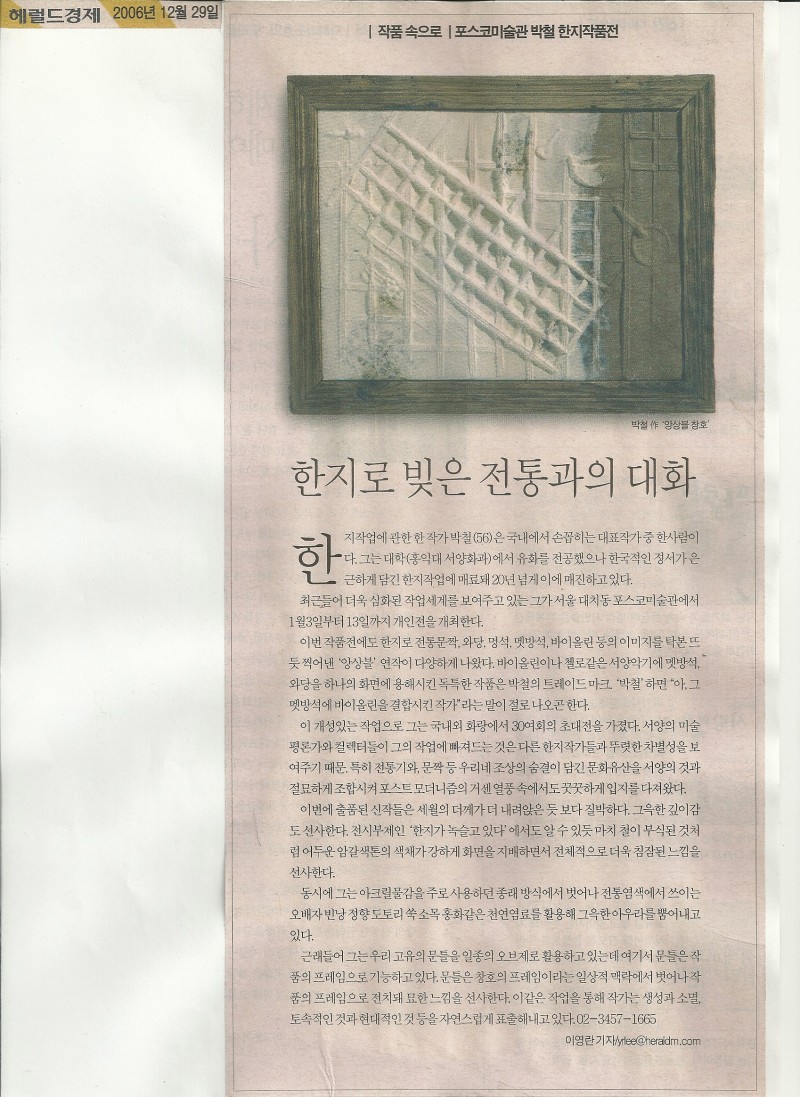 헤럴드경제 2006년 12월 29일
| 작품 속으로 | 포스코미술관 박철 한지작품전
박철 作 '앙상블 창호'
한지로 빚은 전통과의 대화
한지작업에 관한 한 작가 박철(56)은 국내에서 손꼽히는 대표작가 중 한사람이
다. 그는 대학(홍익대 서양화과)에서 유화를 전공했으나 한국적인 정서가 은
근하게 담긴 한지작업에 매료돼 20년 넘게 이에 매진하고 있다.
최근들어 더욱 심화된 작업세계를 보여주고 있는 그가 서울 대치동 포스코미술관에서
1월3일부터 13일까지 개인전을 개최한다.
이번 작품전에도 한지로 전통문짝, 와당, 멍석, 멧방석, 바이올린 등의 이미지를 탁본 뜨
듯 찍어낸 '앙상블' 연작이 다양하게 나왔다. 바이올린이나 첼로같은 서양악기에 멧방석,
와당을 하나의 화면에 용해시킨 독특한 작품은 박철의 트레이드 마크. '박철' 하면 "아, 그
멧방석에 바이올린을 결합시킨 작가"라는 말이 절로 나오곤 한다.
이 개성있는 작업으로 그는 국내외 화랑에서 30여회의 초대전을 가졌다. 서양의 미술
평론가와 컬렉터들이 그의 작업에 빠져드는 것은 다른 한지작가들과 뚜렷한 차별성을 보
여주기 때문. 특히 전통기와, 문짝 등 우리네 조상의 숨결이 담긴 문화유산을 서양의 것과
절묘하게 조합시켜 포스트 모더니즘의 거센 열풍 속에서도 꿋꿋하게 입지를 다져왔다.
이번에 출품된 신작들은 세월의 더께가 더 내려앉은 듯 보다 질박하다. 그윽한 깊이감
도 선사한다. 전시부제인 '한지가 녹슬고 있다' 에서도 알 수 있듯 마치 철이 부식된 것처
럼 어두운 암갈색톤의 색채가 강하게 화면을 지배하면서 전체적으로 더욱 침잠된 느낌을
선사한다.
동시에 그는 아크릴물감을 주로 사용하던 종래 방식에서 벗어나 전통염색에서 쓰이는
오배자 빈낭 정향 도토리 쑥 소목 홍화같은 천연염료를 활용해 그윽한 아우라를 뿜어내고
있다.
근래들어 그는 우리 고유의 문틀을 일종의 오브제로 활용하고 있는데 여기서 문틀은 작
품의 프레임으로 기능하고 있다. 문틀은 창호의 프레임이라는 일상적 맥락에서 벗어나 작
품의 프레임으로 전치돼 묘한 느낌을 선사한다. 이같은 작업을 통해 작가는 생성과 소멸,
토속적인 것과 현대적인 것 등을 자연스럽게 표출해내고 있다. 02-3457-1665
이영란 기자/yrlee@heraldm.com